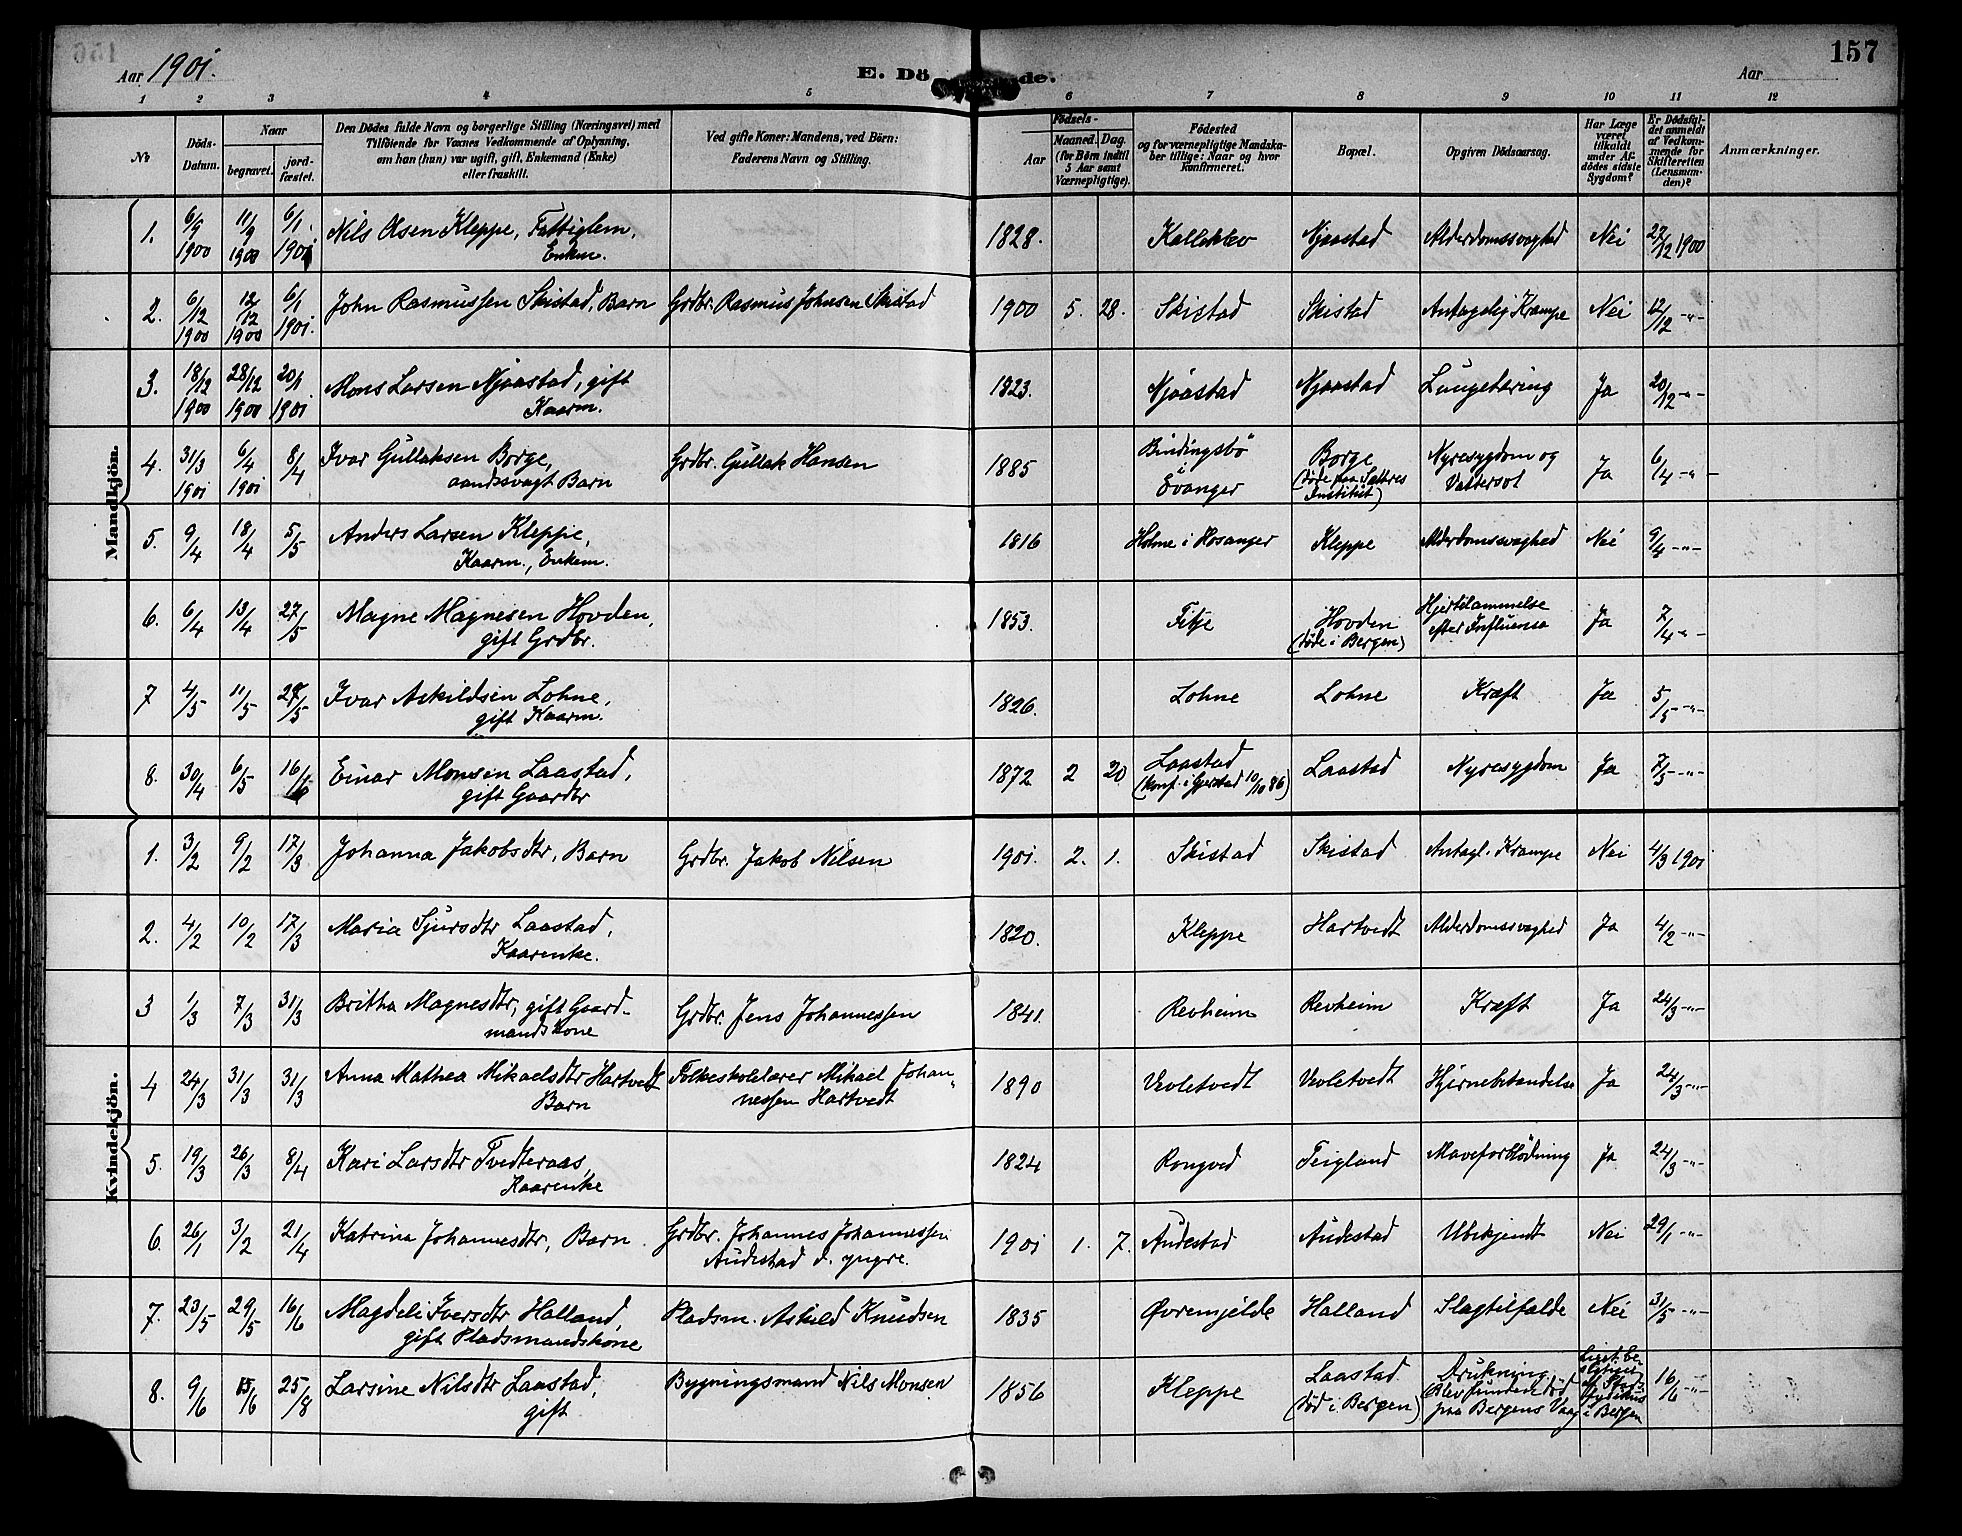 156
Aar 1901.
E. Dö de.
Aar
157
1 2 3 4 5 6 7 8 9 10 11 12
No
Döds-Datum.
Naar
begravet.
jord-fæstet.
Den Dödes fulde Navn og borgerlige Stilling (Næringsvei) med
Tilföiende for Voxnes Vedkommende af Oplysning,
om han (hun) var ugift, gift, Enkemand (Enke)
eller fraskilt.
Ved gifte Koner: Mandens, ved Börn:
Faderens Navn og Stilling.
Födsels-
Aar
Maaned. Dag.
(for Börn indtil
5 Aar samt
Værnepligtige).
Födested
og for værnepligtige Mandska-
ber tillige: Naar og hvor
konfirmeret.
Bopæl.
Opgiven Dödsaarsag.
Har Læge
været
tilkaldt
under Af-
dödes sidste
Sygdom?
Er Dödsfal-
det anmeldt
af Vedkom-
mende for
Skifteretten
(Lensman-
den)?
Anmærkninger.
Mandkjön.
1. 6/9 1900 11/9 1900 6/1 1901 Nils Olsen Kleppe, Fattiglem, Enkm. 1828. Kalleklev Njaastad Alderdomssvaghed Nei 27/12 1900
2. 6/12 1900 12/12 1900 6/1 1901. John Rasmussen Skistad, Barn Grdbr. Rasmus Johnsen Skistad 1900 5. 28. Skistad Skistad Antagelig Krampe Nei 12/12 -"-
3. 18/12 1900 28/12 1900 20/1 1901 Mons Larsen Njaastad, gift Kaarm. 1823. Njaastad Njaastad Lungetæring Ja 20/12 -"-
4. 31/3 1901 6/4 1901 8/4 Ivar Gullaksen Borge, aandssvagt Barn Grdbr. Gullak Hansen 1885 Bindingsbö i Evanger Borge (döde paa Sættres Institut) Nyresygdom og Vattersot Ja 6/4 -"-
5. 9/4 18/4 5/5 Anders Larsen Kleppe, Kaarm., Enkem. 1816 Holme i Hosanger Kleppe Alderdomssvaghed Nei 9/4 -"-
6. 6/4 13/4 27/5 Magne Magnesen Hovden, gift Grdbr. 1853. Fitje Hovden (döde i Bergen) Hjertelammelse efter Influensa Ja 7/4 -"-
7 4/5 11/5 28/5 Ivar Askildsen Lohne, gift Kaarm. 1826. Lohne Lohne Kræft Ja 5/5 -"-
8. 30/4 6/5 16/6 Einar Monsen Laastad, gift Gaardbr 1872 2 20 Laastad (konf. i Gjerstad 10/10 86) Laastad Nyresygdom Ja 7/5 -"-
Kvindekjön.
1. 3/2 9/2 17/3 Johanna Jakobsdtr, Barn Grdbr. Jakob Nilsen 1901. 2. 1. Skistad Skistad Antagl. Krampe Nei 4/3 1901
2. 4/2 10/2 17/3 Maria Sjursdtr Laastad, Kaarenke. 1820. Kleppe Hartvedt Alderdomssvaghed Ja 4/2 -"-
3 1/3 7/3 31/3 Britha Magnesdtr, gift Gaard-mandskone Grdbr. Jens Johannessen 1841. Revheim Revheim Kræft Ja 24/3 -"-
4 24/3 31/3 31/3 Anna Mathea Mikaelsdtr Hartvedt Barn Folkeskolelærer Mikael Johan-nessen Hartvedt 1890 Vevletvedt Vevletvedt Hjernebetændelse Ja 24/3 -"-
5. 19/3 26/3 8/4 Kari Larsdtr Tvedteraas, Kaarenke 1824 Rongved Teigland Maveforblödning Ja 24/3 -"-
6. 26/1 3/2 21/4 Katrina Johannesdtr, Barn Grdbr. Johannes Johannessen Audestad d. yngre. 1901 1. 7. Audestad Audestad Ubekjendt Nei 29/1 -"-
7. 23/5 29/5 16/6 Magdeli Iversdtr Halland, gift Pladsmandskone Pladsm. Askild Knudsen 1835 Øvremjelde Halland Slagtilfælde Nei 31/5 -"-
8. 9/6 15/6 25/8 Larsine Nilsdtr Laastad, gift Bygningsmand Nils Monsen 1856 Kleppe Laastad. (död i Bergen) Drukning Blev funden död paa Bergens Vaag Liget be- i Bergen 16/6 -"-